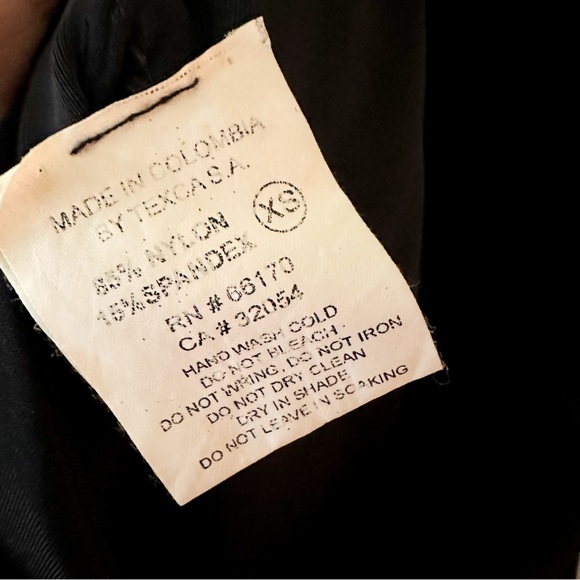 MADE IN COLOMBIA
BY TEXCA S.A.
85% NYLON
15% SPANDEX
XS
RN # 66170
CA # 32054
HAND WASH COLD
DO NOT BLEACH.
DO NOT WRING, DO NOT IRON
DO NOT DRY CLEAN
DRY IN SHADE
DO NOT LEAVE IN SOAKING